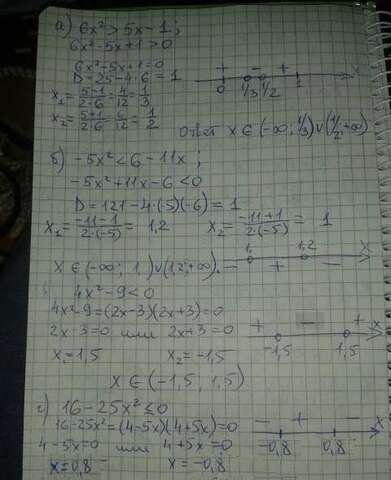 а) 6x² > 5x - 1 ;
6x² - 5x + 1 > 0
6x² - 5x + 1 = 0
D = 25 - 4·6 = 1
x₁ = (5-1)/(2·6) = 4/12 = 1/3
x₂ = (5+1)/(2·6) = 6/12 = 1/2
+ - +
0 1/3 1/2 1 x
Ответ x ∈ (-∞; 1/3) ∪ (1/2; +∞)
б) -5x² < 6 - 11x ;
-5x² + 11x - 6 < 0
D = 121 - 4·(-5)(-6) = 1
x₁ = (-11-1)/(2·(-5)) = 1,2 x₂ = (-11+1)/(2·(-5)) = 1
1 1,2 x
- + -
x ∈ (-∞; 1) ∪ (1,2; +∞).
4x² - 9 < 0
4x² - 9 = (2x-3)(2x+3) = 0
2x - 3 = 0 или 2x + 3 = 0
x₁ = 1,5 x₂ = -1,5
+ - +
-1,5 1,5 x
x ∈ (-1,5; 1,5)
г) 16 - 25x² ≤ 0
16 - 25x² = (4-5x)(4+5x) = 0
4 - 5x = 0 или 4 + 5x = 0
x = 0,8 x = -0,8
- + -
-0,8 0,8 x